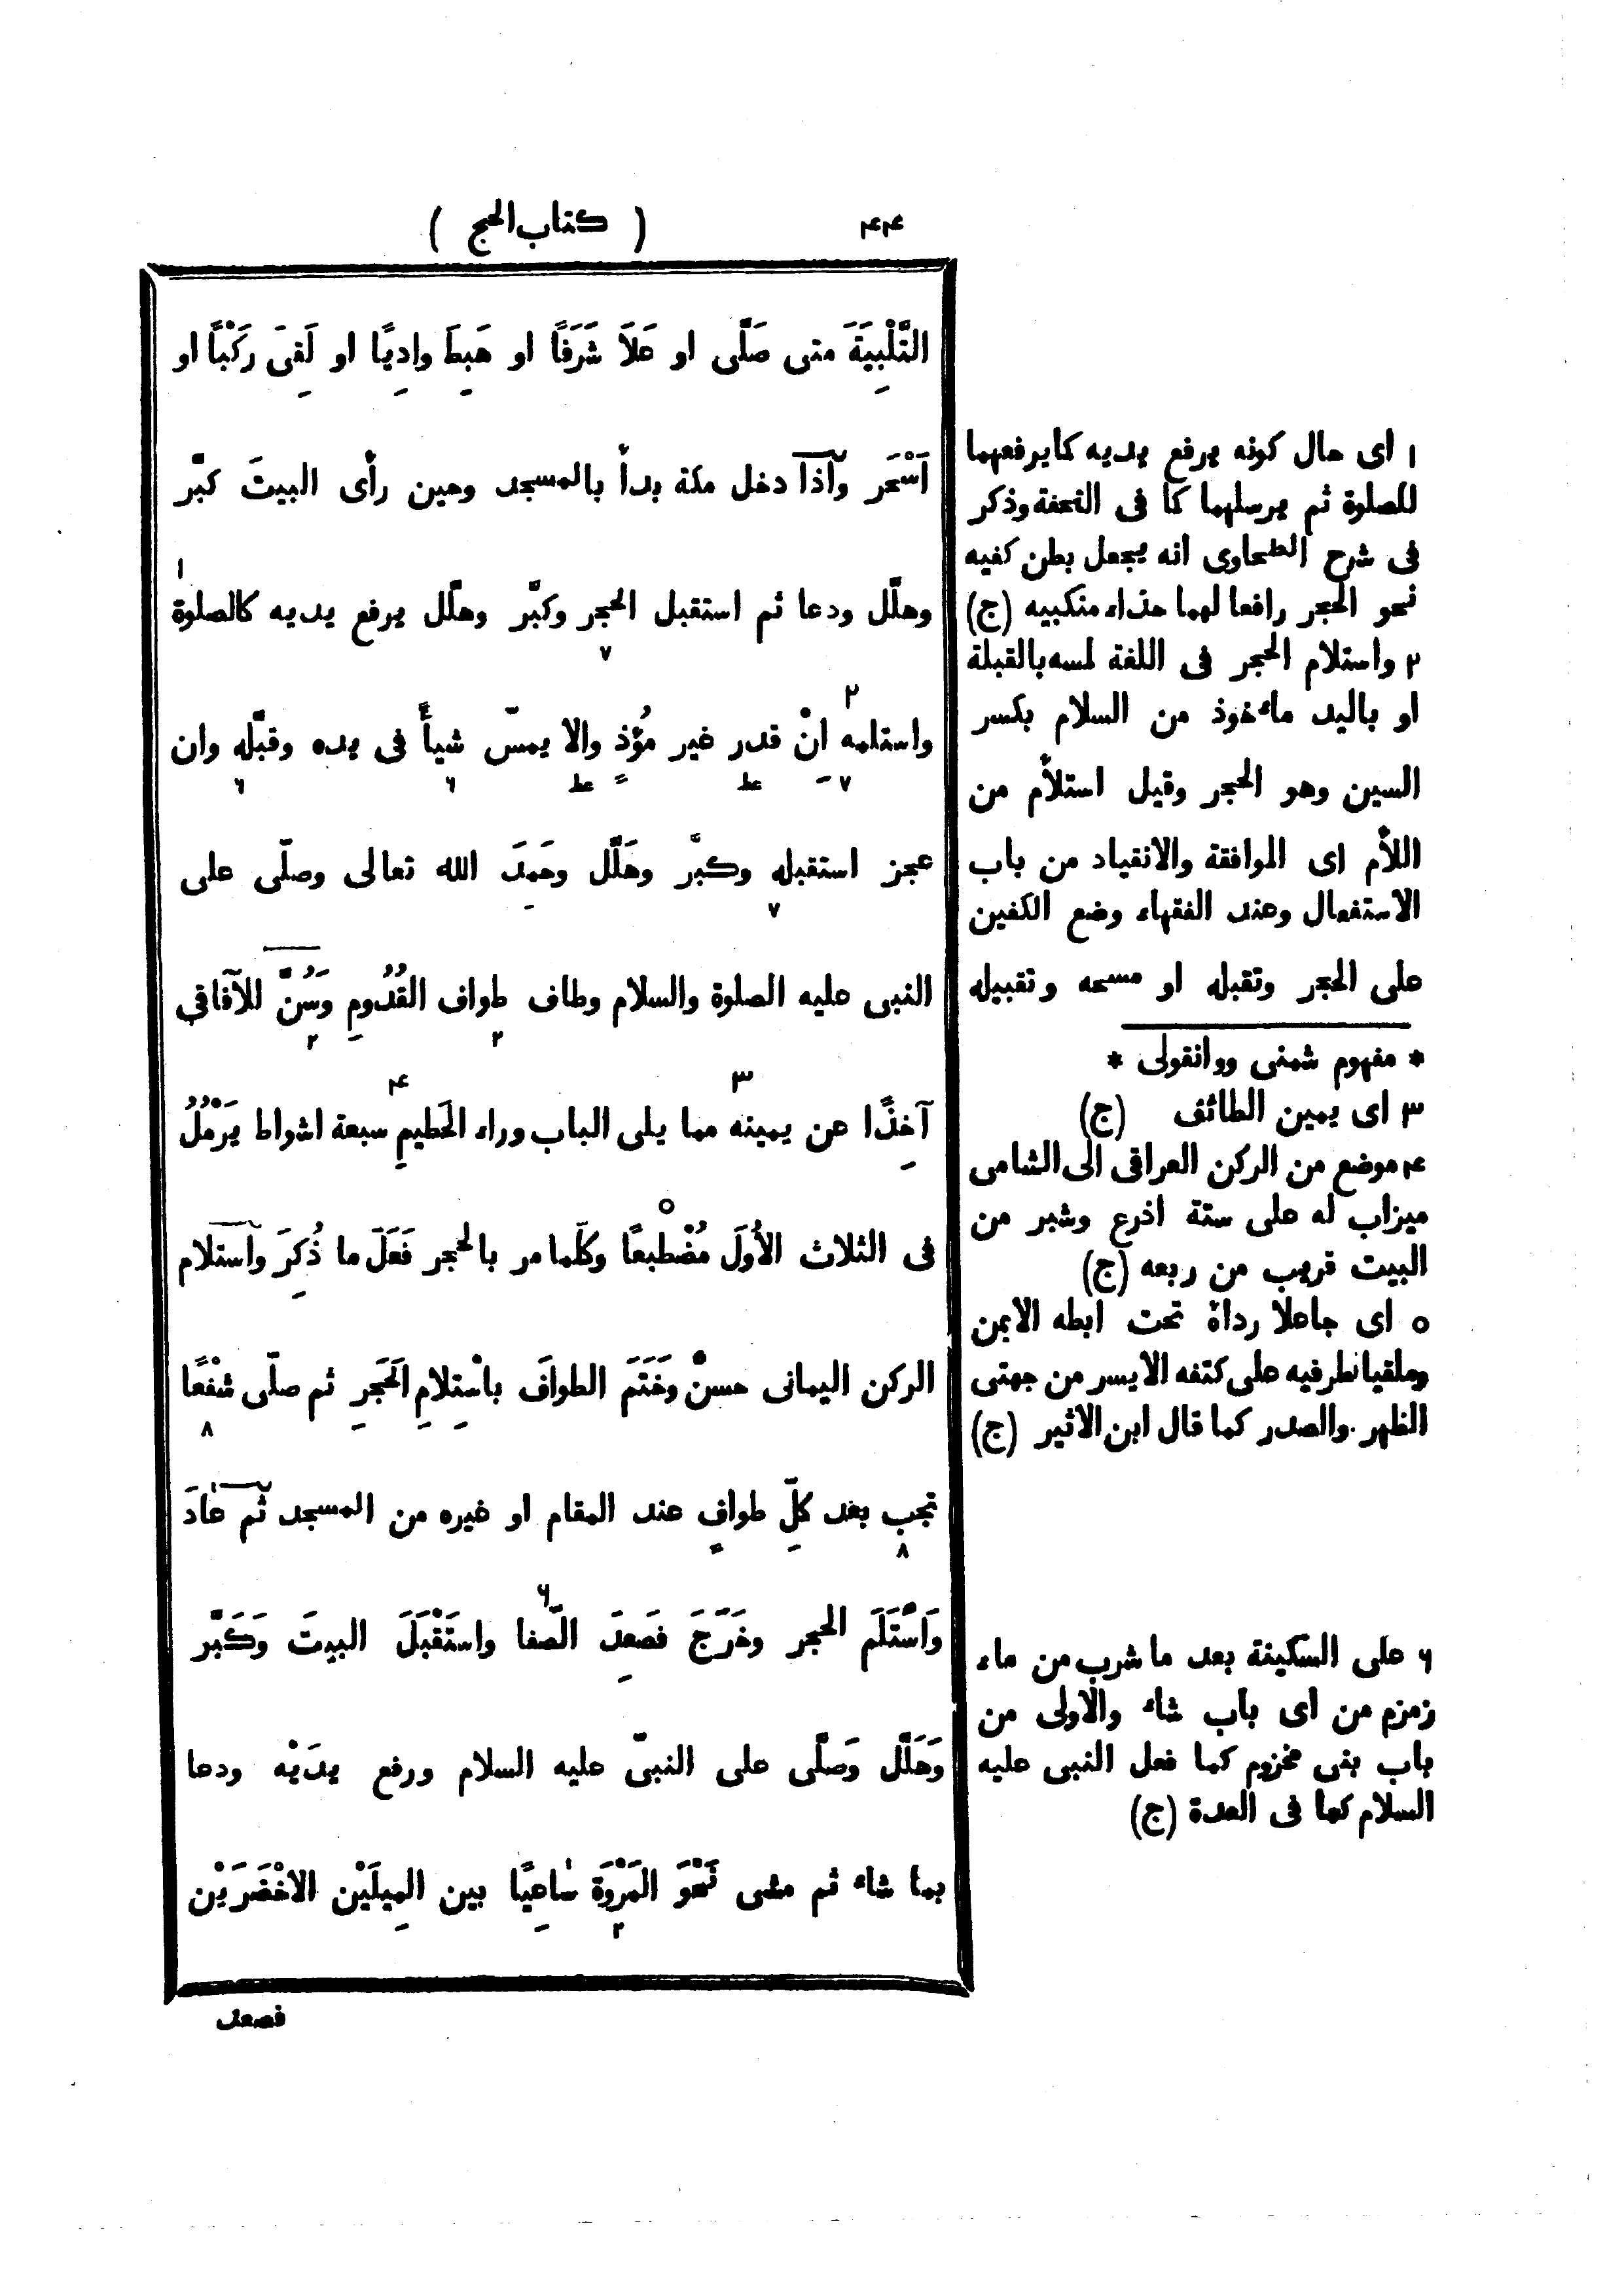 ٤٤ ( كتاب الحج )
التَّلْبِيَةَ متى صَلَّى او عَلَا شَرَفًا او هَبِطَ وادِيًا او لَقِىَ رَكْبًا او
اَسْحَر وآذا دخل مكة بدأ بالمسجد وحين رأى البيتَ كبّر
١
وهلّل ودعا ثم استقبل الحجر وكبّر وهلّل يرفع يديه كالصلوة
٧
٢
واستلمه اِنْ قدر غير مُؤْذٍ والا يمسّ شيأً فى يده وقبّله وان
٧ عط عط ٦ ٦
عجز استقبله وكبّر وهَلَّل وحَمِدَ الله تعالى وصلّى على
٧
النبى عليه الصلوة والسلام وطاف طواف القُدُومِ وَسُنَّ للآفاقي
٢ ٢
٣ ٤
آخِذًا عن يمينه مما يلى الباب وراء الحَطيمِ سبعة اشواط يَرْمُلُ
٥
فى الثلاث الأُوَلَ مُضْطَبعًا وكلّما مر بالحجر فَعَلَ ما ذُكِرَ وآستلام
الركن اليمانى حسنٌ وخَتَمَ الطوافَ باسْتِلامِ الحَجَرِ ثم صلّى شَفْعًا
٨
تجب بعد كلِّ طوافٍ عند المقام او غيره من المسجد ثم عادَ
٨
٦
وَاسْتَلَمَ الحجر وخَرَجَ فصَعِدَ الصّفا واستَقْبَلَ البيتَ وَكَبَّر
وَهَلَّل وَصَلَّى على النبىّ عليه السلام ورفع يدَيْه ودعا
بما شاء ثم مشى نَحْوَ المَرْوَة ساعِيًا بين المِيلَيْن الاخْضَرَيْن
٢
فصعد
١ اى حال كونه يرفع يديه كما يرفعهما
للصلوة ثم يرسلهما كما فى التحفة وذكر
فى شرح الطحاوى انه يجعل بطن كفيه
نحو الحجر رافعا لهما حذاء منكبيه (ج)
٢ واستلام الحجر فى اللغة لمسه بالقبلة
او باليد مأخوذ من السلام بكسر
السين وهو الحجر وقيل استلأم من
اللأم اى الموافقة والانقياد من باب
الاستفعال وعند الفقهاء وضع الكفين
على الحجر وتقبله او مسحه وتقبيله
* مفهوم شمنى ووانقولى *
٣ اى يمين الطائف (ج)
٤ موضع من الركن العراقى الى الشامى
ميزاب له على ستة اذرع وشبر من
البيت قريب من ربعه (ج)
٥ اى جاعلا رداة تحت ابطه الايمن
وملقيا طرفيه على كتفه الايسر من جهتى
الظهر والصدر كما قال ابن الاثير (ج)
٦ على السكينة بعد ما شرب من ماء
زمزم من اى باب شاء والاولى من
باب بنى مخزوم كما فعل النبى عليه
السلام كما فى العدة (ج)